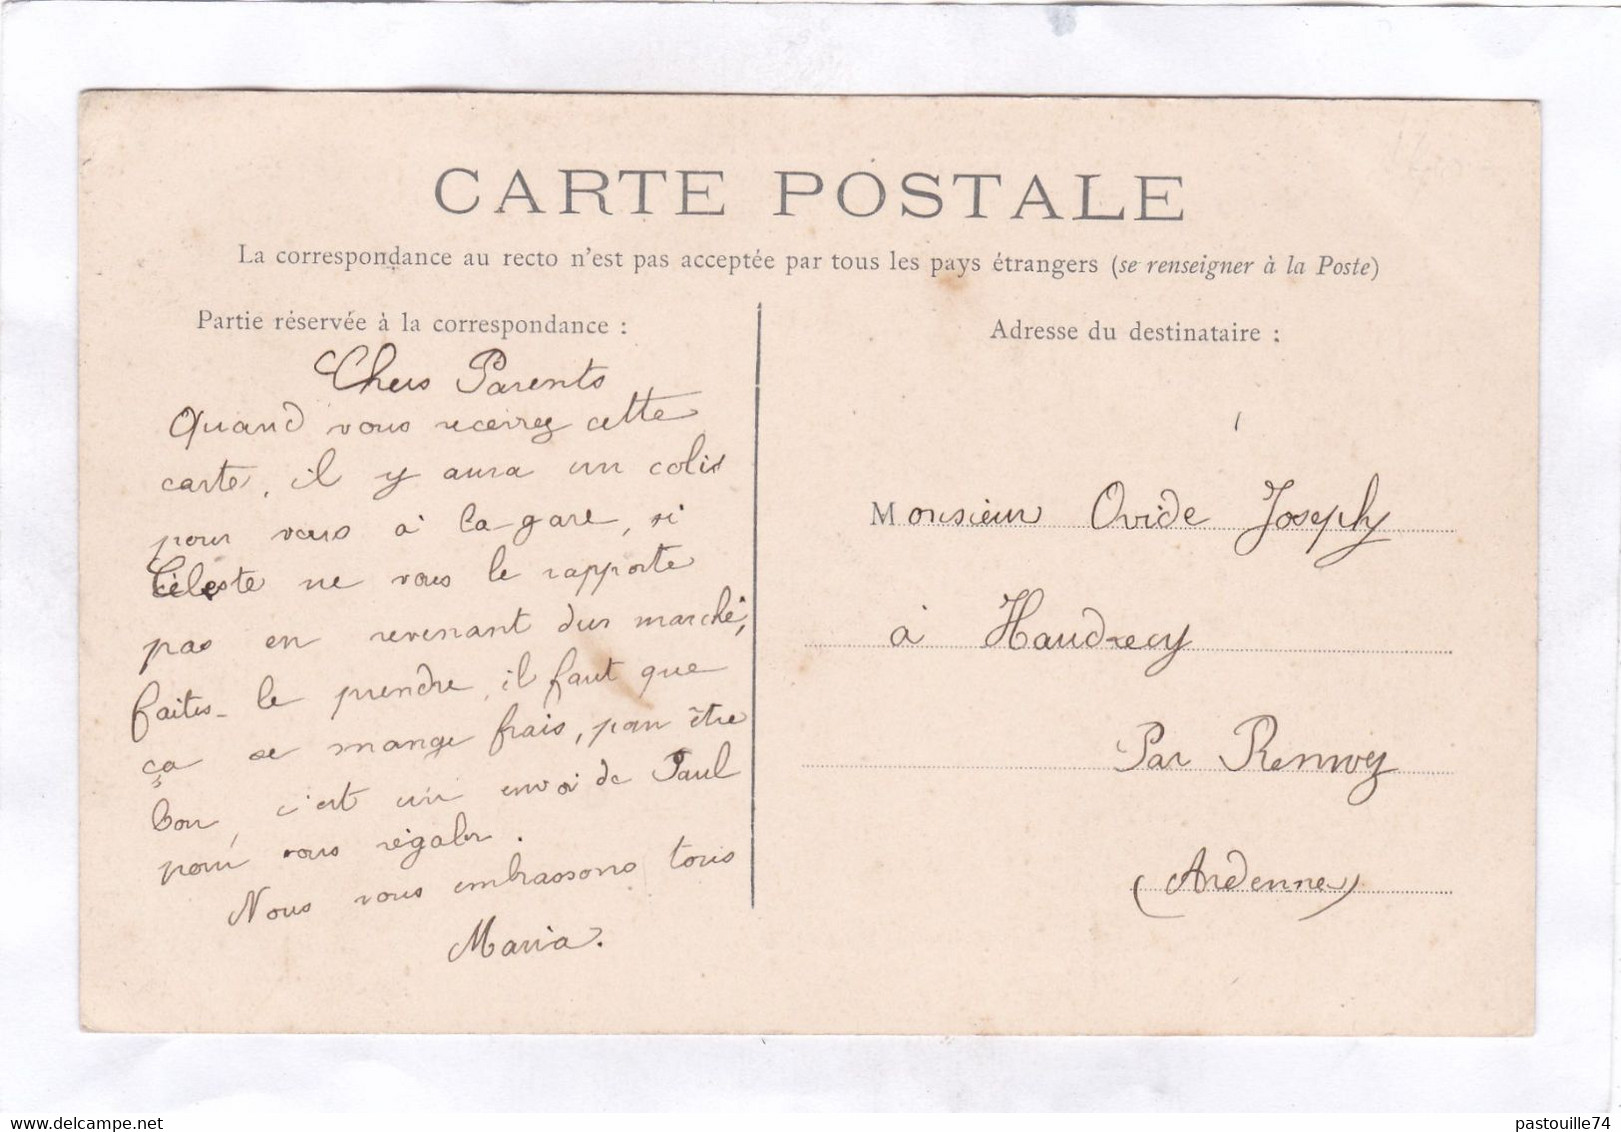 CARTE POSTALE
La correspondance au recto n'est pas acceptée par tous les pays étrangers (se renseigner à la Poste)
Partie réservée à la correspondance :
Chers Parents
Quand vous recevrez cette
carte, il y aura un colis
pour vous à la gare, si
Céleste ne vous le rapporte
pas en revenant du marché,
faites-le prendre, il faut que
ça se mange frais, pour être
bon, c'est un envoi de Paul
pour vous régaler.
Nous vous embrassons tous
Maria.
Adresse du destinataire :
Monsieur Ovide Josephy
à Haudrecy
Par Renwez
(Ardenne)
www.delcampe.net
pastouille74